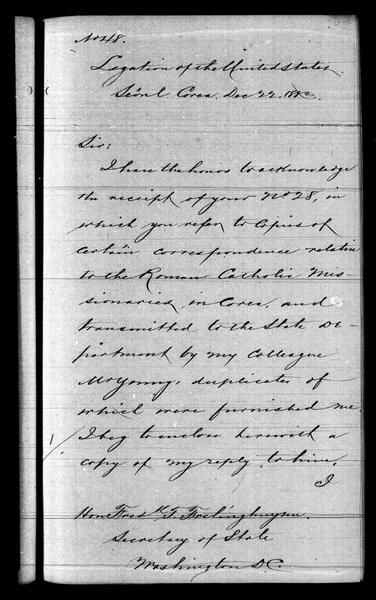 No 48.
Legation of the United States.
Séoul Corea. Dec 22. 1883.
Sir:
I have the honor to acknowledge
the receipt of your No 28, in
which you refer to copies of
certain correspondence relative
to the Roman Catholic Mis-
sionaries, in Corea, and
transmitted to the State De-
partment by my Colleague
Mr Young, duplicates of
which were furnished me.
1/ I beg to enclose herewith a
copy of my reply to him.
I
Hon Fredk. T. Frelinghuysen.
Secretary of State
Washington D.C.